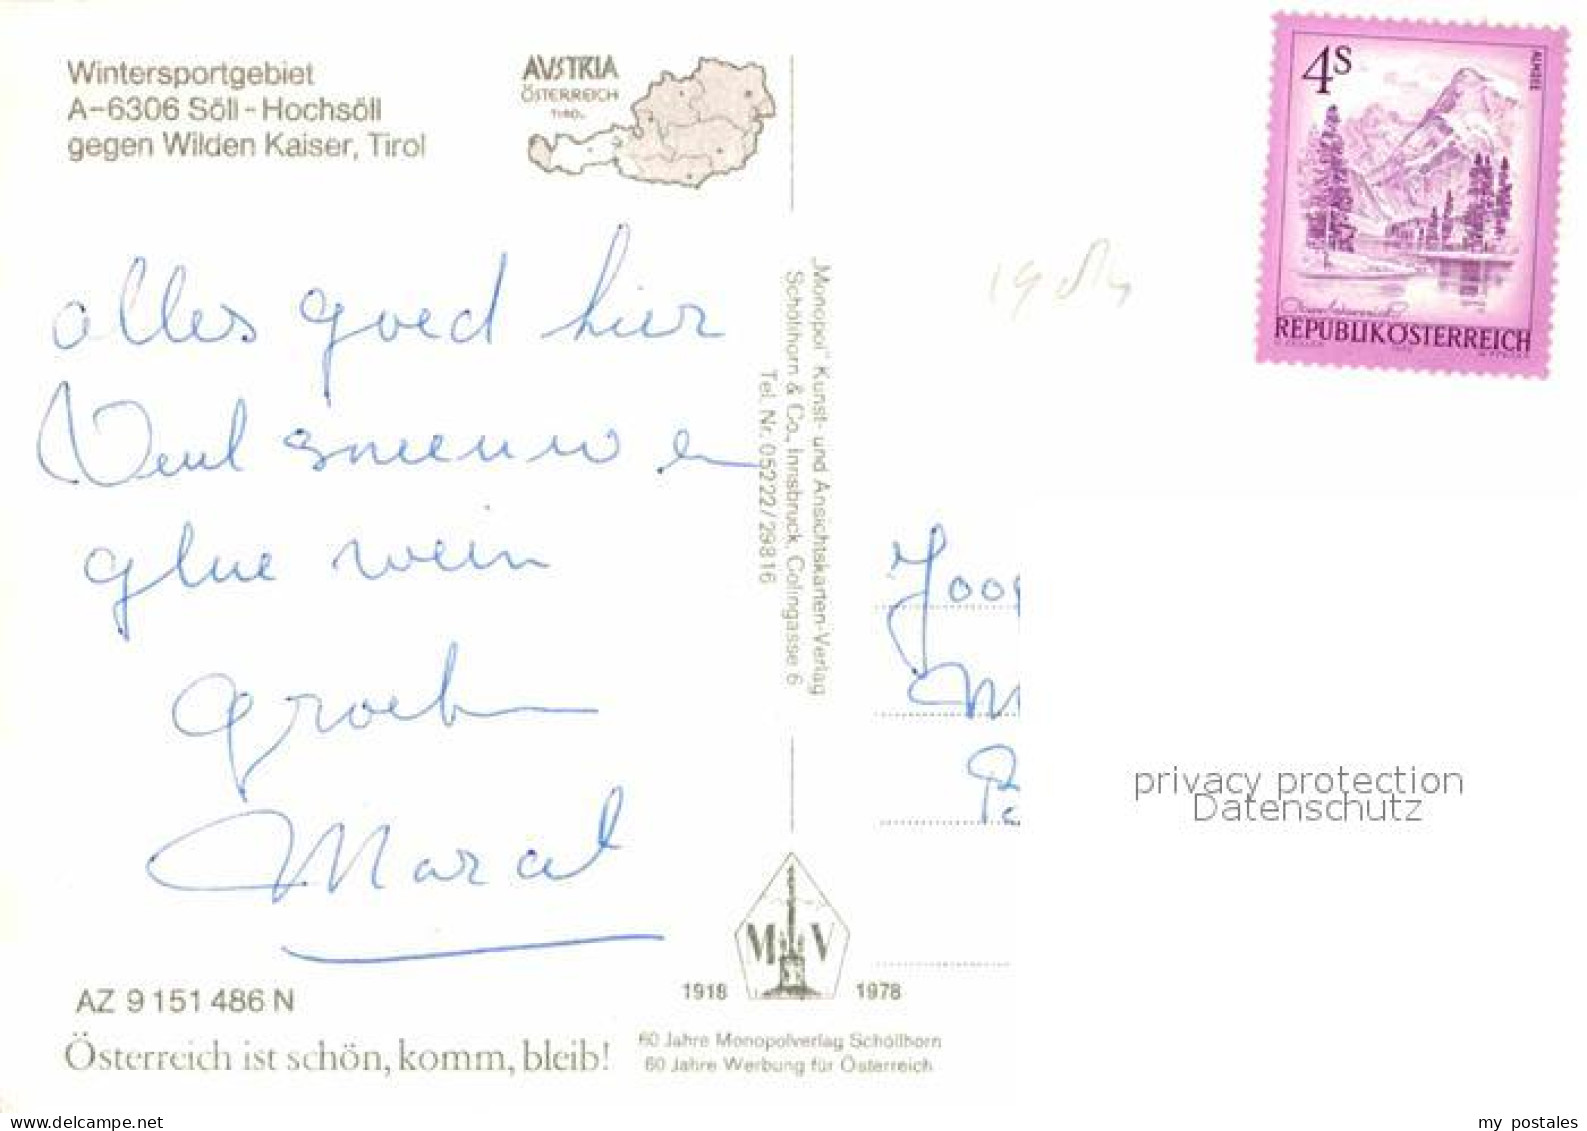 Wintersportgebiet
A-6306 Söll - Hochsöll
gegen Wilden Kaiser, Tirol
AUSTRIA
ÖSTERREICH
TIROL
alles goed hier
Veul sneeuw en
glue wein
Groeten
Marcel
AZ 9 151 486 N
Österreich ist schön, komm, bleib!
„Monopol" Kunst- und Ansichtskarten-Verlag
Schöllhorn & Co., Innsbruck, Colingasse 6
Tel. Nr. 05222/29816
M V
1918 1978
60 Jahre Monopolverlag Schöllhorn
60 Jahre Werbung für Österreich
4S
ALMSEE
Oberösterreich
REPUBLIK ÖSTERREICH
Joo
M
privacy protection
Datenschutz
delcampe.net
my_postales